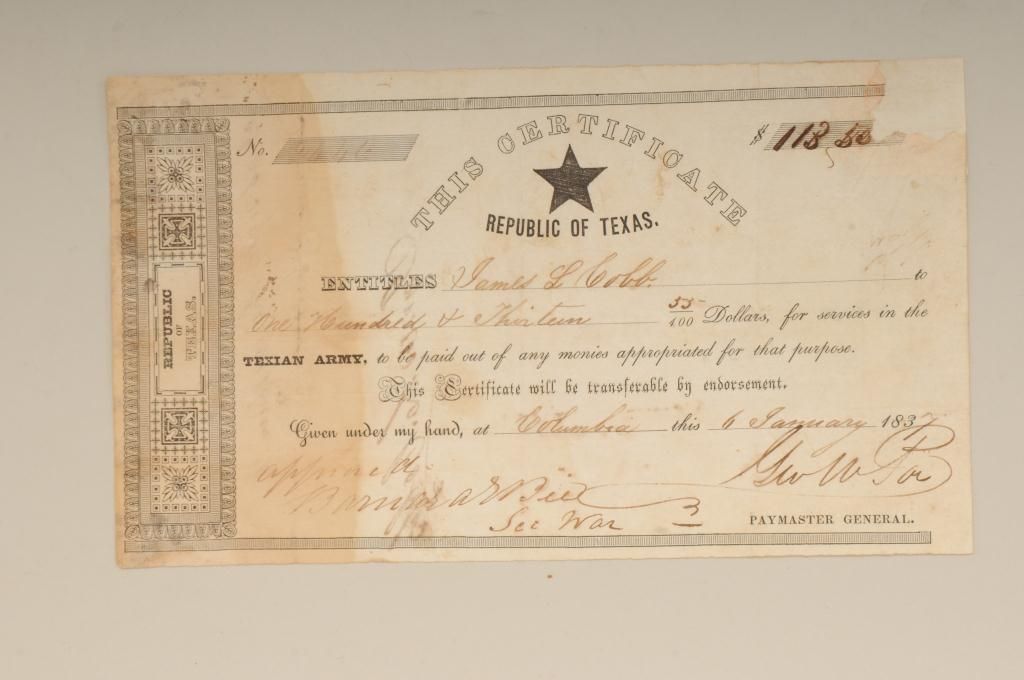 No.
$ 113
THIS CERTIFICATE
REPUBLIC OF TEXAS.
ENTITLES James L Cobb. to
One Hundred & Thirteen 55/100 Dollars, for services in the
TEXIAN ARMY, to be paid out of any monies appropriated for that purpose.
This Certificate will be transferable by endorsement.
Given under my hand, at Columbia this 6 January 1837
approved
Geo W Poe
Sec War
PAYMASTER GENERAL.
REPUBLIC
OF
TEXAS.